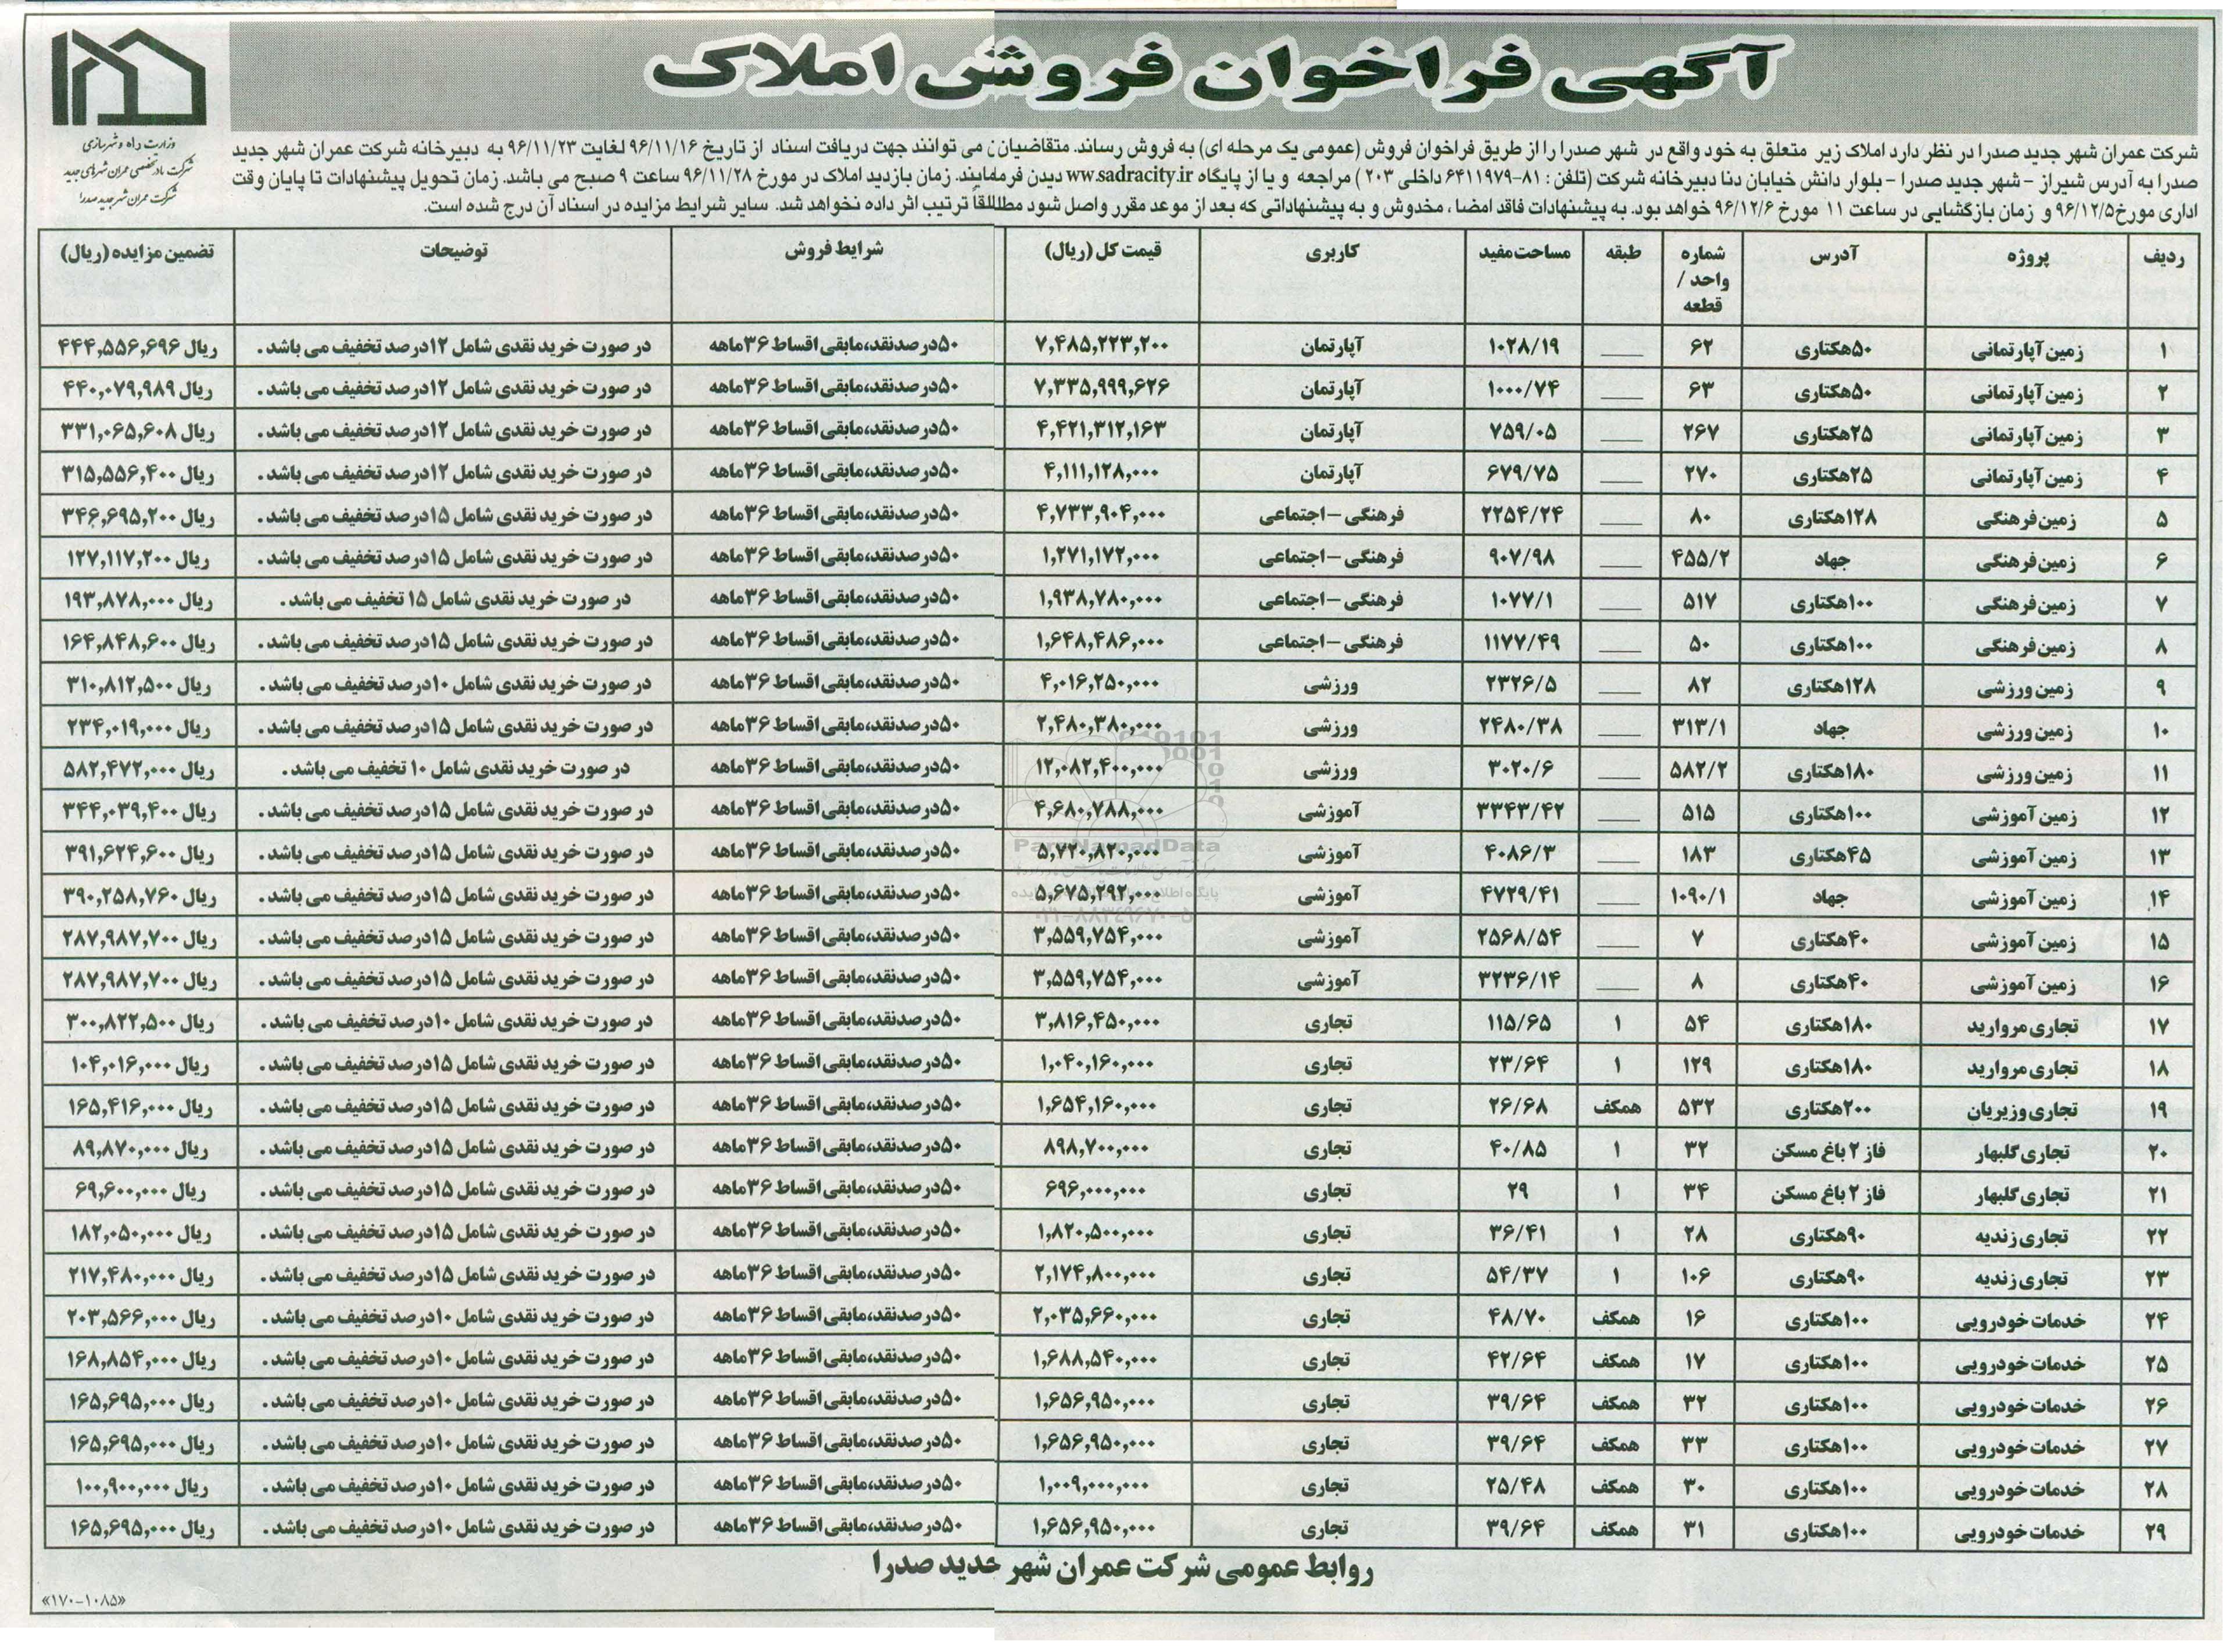 آگهی فراخوان فروش املاک
وزارت راه و شهرسازی
شرکت مادر تخصصی عمران شهرهای جدید
شرکت عمران شهر جدید صدرا
شرکت عمران شهر جدید صدرا در نظر دارد املاک زیر متعلق به خود واقع در شهر صدرا را از طریق فراخوان فروش (عمومی یک مرحله ای) به فروش رساند. متقاضیان می توانند جهت دریافت اسناد از تاریخ ۹۶/۱۱/۱۶ لغایت ۹۶/۱۱/۲۳ به دبیرخانه شرکت عمران شهر جدید
صدرا به آدرس شیراز – شهر جدید صدرا – بلوار دانش خیابان دنا دبیرخانه شرکت (تلفن : ۸۱-۶۴۱۱۹۷۹ داخلی ۲۰۳) مراجعه و یا از پایگاه ww.sadracity.ir دیدن فرمایند. زمان بازدید املاک در مورخ ۹۶/۱۱/۲۸ ساعت ۹ صبح می باشد. زمان تحویل پیشنهادات تا پایان وقت
اداری مورخ ۹۶/۱۲/۵ و زمان بازگشایی در ساعت ۱۱ مورخ ۹۶/۱۲/۶ خواهد بود. به پیشنهادات فاقد امضا ، مخدوش و به پیشنهاداتی که بعد از موعد مقرر واصل شود مطلقاً ترتیب اثر داده نخواهد شد. سایر شرایط مزایده در اسناد آن درج شده است.
ردیف پروژه آدرس شماره واحد / قطعه طبقه مساحت مفید کاربری قیمت کل (ریال) شرایط فروش توضیحات تضمین مزایده (ریال)
۱ زمین آپارتمانی ۵۰هکتاری ۶۲ ___ ۱۰۲۸/۱۹ آپارتمان ۷,۴۸۵,۲۲۳,۲۰۰ ۵۰درصدنقد،مابقی اقساط ۳۶ماهه در صورت خرید نقدی شامل ۱۲درصد تخفیف می باشد. ریال ۴۴۴,۵۵۶,۶۹۶
۲ زمین آپارتمانی ۵۰هکتاری ۶۳ ___ ۱۰۰۰/۷۴ آپارتمان ۷,۳۳۵,۹۹۹,۶۲۶ ۵۰درصدنقد،مابقی اقساط ۳۶ماهه در صورت خرید نقدی شامل ۱۲درصد تخفیف می باشد. ریال ۴۴۰,۰۷۹,۹۸۹
۳ زمین آپارتمانی ۲۵هکتاری ۲۶۷ ___ ۷۵۹/۰۵ آپارتمان ۴,۴۲۱,۳۱۲,۱۶۳ ۵۰درصدنقد،مابقی اقساط ۳۶ماهه در صورت خرید نقدی شامل ۱۲درصد تخفیف می باشد. ریال ۳۳۱,۰۶۵,۶۰۸
۴ زمین آپارتمانی ۲۵هکتاری ۲۷۰ ___ ۶۷۹/۷۵ آپارتمان ۴,۱۱۱,۱۲۸,۰۰۰ ۵۰درصدنقد،مابقی اقساط ۳۶ماهه در صورت خرید نقدی شامل ۱۲درصد تخفیف می باشد. ریال ۳۱۵,۵۵۶,۴۰۰
۵ زمین فرهنگی ۱۲۸هکتاری ۸۰ ___ ۲۲۵۴/۲۴ فرهنگی – اجتماعی ۴,۷۳۳,۹۰۴,۰۰۰ ۵۰درصدنقد،مابقی اقساط ۳۶ماهه در صورت خرید نقدی شامل ۱۵درصد تخفیف می باشد. ریال ۳۴۶,۶۹۵,۲۰۰
۶ زمین فرهنگی جهاد ۴۵۵/۲ ___ ۹۰۷/۹۸ فرهنگی – اجتماعی ۱,۲۷۱,۱۷۲,۰۰۰ ۵۰درصدنقد،مابقی اقساط ۳۶ماهه در صورت خرید نقدی شامل ۱۵درصد تخفیف می باشد. ریال ۱۲۷,۱۱۷,۲۰۰
۷ زمین فرهنگی ۱۰۰هکتاری ۵۱۷ ___ ۱۰۷۷/۱ فرهنگی – اجتماعی ۱,۹۳۸,۷۸۰,۰۰۰ ۵۰درصدنقد،مابقی اقساط ۳۶ماهه در صورت خرید نقدی شامل ۱۵ تخفیف می باشد. ریال ۱۹۳,۸۷۸,۰۰۰
۸ زمین فرهنگی ۱۰۰هکتاری ۵۰ ___ ۱۱۷۷/۴۹ فرهنگی – اجتماعی ۱,۶۴۸,۴۸۶,۰۰۰ ۵۰درصدنقد،مابقی اقساط ۳۶ماهه در صورت خرید نقدی شامل ۱۵درصد تخفیف می باشد. ریال ۱۶۴,۸۴۸,۶۰۰
۹ زمین ورزشی ۱۲۸هکتاری ۸۲ ___ ۲۳۲۶/۵ ورزشی ۴,۰۱۶,۲۵۰,۰۰۰ ۵۰درصدنقد،مابقی اقساط ۳۶ماهه در صورت خرید نقدی شامل ۱۰درصد تخفیف می باشد. ریال ۳۱۰,۸۱۲,۵۰۰
۱۰ زمین ورزشی جهاد ۳۱۳/۱ ___ ۲۴۸۰/۳۸ ورزشی ۲,۴۸۰,۳۸۰,۰۰۰ ۵۰درصدنقد،مابقی اقساط ۳۶ماهه در صورت خرید نقدی شامل ۱۵درصد تخفیف می باشد. ریال ۲۳۴,۰۱۹,۰۰۰
۱۱ زمین ورزشی ۱۸۰هکتاری ۵۸۲/۲ ___ ۳۰۲۰/۶ ورزشی ۱۲,۰۸۲,۴۰۰,۰۰۰ ۵۰درصدنقد،مابقی اقساط ۳۶ماهه در صورت خرید نقدی شامل ۱۰ تخفیف می باشد. ریال ۵۸۲,۴۷۲,۰۰۰
۱۲ زمین آموزشی ۱۰۰هکتاری ۵۱۵ ___ ۳۳۴۳/۴۲ آموزشی ۴,۶۸۰,۷۸۸,۰۰۰ ۵۰درصدنقد،مابقی اقساط ۳۶ماهه در صورت خرید نقدی شامل ۱۵درصد تخفیف می باشد. ریال ۳۴۴,۰۳۹,۴۰۰
۱۳ زمین آموزشی ۴۵هکتاری ۱۸۳ ___ ۴۰۸۶/۳ آموزشی ۵,۷۲۰,۸۲۰,۰۰۰ ۵۰درصدنقد،مابقی اقساط ۳۶ماهه در صورت خرید نقدی شامل ۱۵درصد تخفیف می باشد. ریال ۳۹۱,۶۲۴,۶۰۰
۱۴ زمین آموزشی جهاد ۱۰۹۰/۱ ___ ۴۷۲۹/۴۱ آموزشی ۵,۶۷۵,۲۹۲,۰۰۰ ۵۰درصدنقد،مابقی اقساط ۳۶ماهه در صورت خرید نقدی شامل ۱۵درصد تخفیف می باشد. ریال ۳۹۰,۲۵۸,۷۶۰
۱۵ زمین آموزشی ۴۰هکتاری ۷ ___ ۲۵۶۸/۵۴ آموزشی ۳,۵۵۹,۷۵۴,۰۰۰ ۵۰درصدنقد،مابقی اقساط ۳۶ماهه در صورت خرید نقدی شامل ۱۵درصد تخفیف می باشد. ریال ۲۸۷,۹۸۷,۷۰۰
۱۶ زمین آموزشی ۴۰هکتاری ۸ ___ ۳۲۳۶/۱۴ آموزشی ۳,۵۵۹,۷۵۴,۰۰۰ ۵۰درصدنقد،مابقی اقساط ۳۶ماهه در صورت خرید نقدی شامل ۱۵درصد تخفیف می باشد. ریال ۲۸۷,۹۸۷,۷۰۰
۱۷ تجاری مروارید ۱۸۰هکتاری ۵۴ ۱ ۱۱۵/۶۵ تجاری ۳,۸۱۶,۴۵۰,۰۰۰ ۵۰درصدنقد،مابقی اقساط ۳۶ماهه در صورت خرید نقدی شامل ۱۰درصد تخفیف می باشد. ریال ۳۰۰,۸۲۲,۵۰۰
۱۸ تجاری مروارید ۱۸۰هکتاری ۱۲۹ ۱ ۲۳/۶۴ تجاری ۱,۰۴۰,۱۶۰,۰۰۰ ۵۰درصدنقد،مابقی اقساط ۳۶ماهه در صورت خرید نقدی شامل ۱۵درصد تخفیف می باشد. ریال ۱۰۴,۰۱۶,۰۰۰
۱۹ تجاری وزیریان ۲۰۰هکتاری ۵۳۲ همکف ۲۶/۶۸ تجاری ۱,۶۵۴,۱۶۰,۰۰۰ ۵۰درصدنقد،مابقی اقساط ۳۶ماهه در صورت خرید نقدی شامل ۱۵درصد تخفیف می باشد. ریال ۱۶۵,۴۱۶,۰۰۰
۲۰ تجاری گلبهار فاز ۲ باغ مسکن ۳۲ ۱ ۴۰/۸۵ تجاری ۸۹۸,۷۰۰,۰۰۰ ۵۰درصدنقد،مابقی اقساط ۳۶ماهه در صورت خرید نقدی شامل ۱۵درصد تخفیف می باشد. ریال ۸۹,۸۷۰,۰۰۰
۲۱ تجاری گلبهار فاز ۲ باغ مسکن ۳۴ ۱ ۲۹ تجاری ۶۹۶,۰۰۰,۰۰۰ ۵۰درصدنقد،مابقی اقساط ۳۶ماهه در صورت خرید نقدی شامل ۱۵درصد تخفیف می باشد. ریال ۶۹,۶۰۰,۰۰۰
۲۲ تجاری زندیه ۹۰هکتاری ۲۸ ۱ ۳۶/۴۱ تجاری ۱,۸۲۰,۵۰۰,۰۰۰ ۵۰درصدنقد،مابقی اقساط ۳۶ماهه در صورت خرید نقدی شامل ۱۵درصد تخفیف می باشد. ریال ۱۸۲,۰۵۰,۰۰۰
۲۳ تجاری زندیه ۹۰هکتاری ۱۰۶ ۱ ۵۴/۳۷ تجاری ۲,۱۷۴,۸۰۰,۰۰۰ ۵۰درصدنقد،مابقی اقساط ۳۶ماهه در صورت خرید نقدی شامل ۱۵درصد تخفیف می باشد. ریال ۲۱۷,۴۸۰,۰۰۰
۲۴ خدمات خودرویی ۱۰۰هکتاری ۱۶ همکف ۴۸/۷۰ تجاری ۲,۰۳۵,۶۶۰,۰۰۰ ۵۰درصدنقد،مابقی اقساط ۳۶ماهه در صورت خرید نقدی شامل ۱۰درصد تخفیف می باشد. ریال ۲۰۳,۵۶۶,۰۰۰
۲۵ خدمات خودرویی ۱۰۰هکتاری ۱۷ همکف ۴۲/۶۴ تجاری ۱,۶۸۸,۵۴۰,۰۰۰ ۵۰درصدنقد،مابقی اقساط ۳۶ماهه در صورت خرید نقدی شامل ۱۰درصد تخفیف می باشد. ریال ۱۶۸,۸۵۴,۰۰۰
۲۶ خدمات خودرویی ۱۰۰هکتاری ۳۲ همکف ۳۹/۶۴ تجاری ۱,۶۵۶,۹۵۰,۰۰۰ ۵۰درصدنقد،مابقی اقساط ۳۶ماهه در صورت خرید نقدی شامل ۱۰درصد تخفیف می باشد. ریال ۱۶۵,۶۹۵,۰۰۰
۲۷ خدمات خودرویی ۱۰۰هکتاری ۳۳ همکف ۳۹/۶۴ تجاری ۱,۶۵۶,۹۵۰,۰۰۰ ۵۰درصدنقد،مابقی اقساط ۳۶ماهه در صورت خرید نقدی شامل ۱۰درصد تخفیف می باشد. ریال ۱۶۵,۶۹۵,۰۰۰
۲۸ خدمات خودرویی ۱۰۰هکتاری ۳۰ همکف ۲۵/۴۸ تجاری ۱,۰۰۹,۰۰۰,۰۰۰ ۵۰درصدنقد،مابقی اقساط ۳۶ماهه در صورت خرید نقدی شامل ۱۰درصد تخفیف می باشد. ریال ۱۰۰,۹۰۰,۰۰۰
۲۹ خدمات خودرویی ۱۰۰هکتاری ۳۱ همکف ۳۹/۶۴ تجاری ۱,۶۵۶,۹۵۰,۰۰۰ ۵۰درصدنقد،مابقی اقساط ۳۶ماهه در صورت خرید نقدی شامل ۱۰درصد تخفیف می باشد. ریال ۱۶۵,۶۹۵,۰۰۰
روابط عمومی شرکت عمران شهر جدید صدرا
«۱۷۰-۱۰۸۵»
ParsNamadData
۰۲۱-۸۸۳۴۹۶۷۰-۵